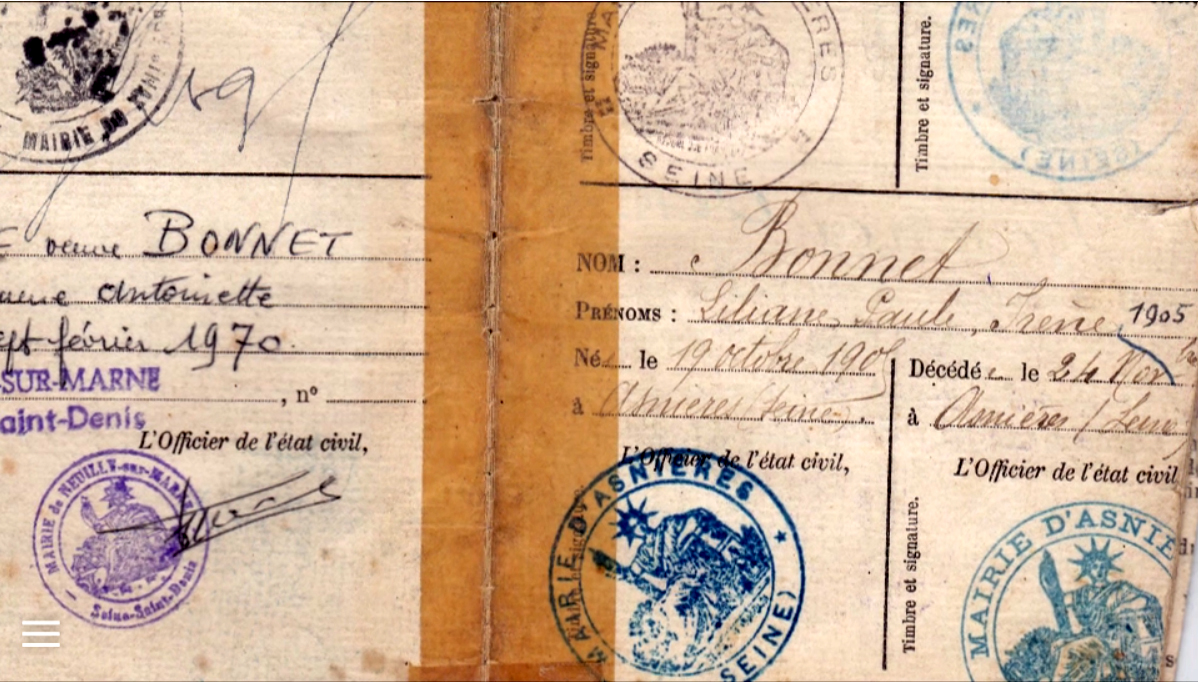 MAIRIE DU
veuve BONNET
Antoinette
sept février 1970.
-SUR-MARNE
, n°
aint-Denis
L'Officier de l'état civil,
MAIRIE de NEUILLY-sur-MARNE
Seine-Saint-Denis
Timbre et signature.
SEINE
Timbre et signature.
(SEINE)
NOM : Bonnet
PRÉNOMS : Liliane, Paule, Irène, 1905
Née le 19 octobre 190
à Asnières (Seine).
L'Officier de l'état civil,
MAIRIE D'ASNIERES
(SEINE)
Décédée le 24 Nov
à Asnières (Seine)
L'Officier de l'état civil
Timbre et signature.
MAIRIE D'ASNIE